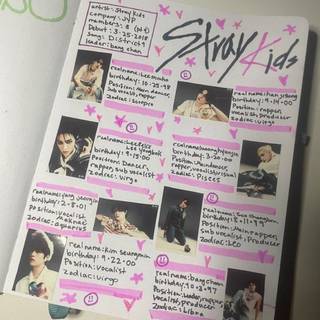 artist: Stray Kids
company: JYP
members: 8 (ot8)
Debut: 3-25-2018
Song: District9
leader: bang chan
Stray Kids
real name: Lee minho
birthday: 10-25-98
Position: main dancer,
sub vocalist, rapper
zodiac: scorpio
real name: han jisung
birthday: 9-14-00
Position: rapper,
vocalist, producer
zodiac: virgo
real name: Lee felix
Lee yongbok
birthday: 9-15-00
Position: Dancer,
rapper, sub vocalist
zodiac: virgo
real name: hwang hyunjin
birthday: 3-20-00
Position: Main dancer
rapper, vocalist, visual
zodiac: Pisces
real name: yang jeongin
birthday: 2-8-01
Position: vocalist
maknae
zodiac: aquarius
real name: Seo Changbin
birthday: 8-11-99
Position: Main rapper,
sub vocalist, producer
zodiac: Leo
real name: Kim seungmin
birthday: 9-22-00
Position: vocalist
zodiac: virgo
real name: bang chan
birthday: 10-3-97
Position: leader, rapper,
vocalist, producer
zodiac: Libra